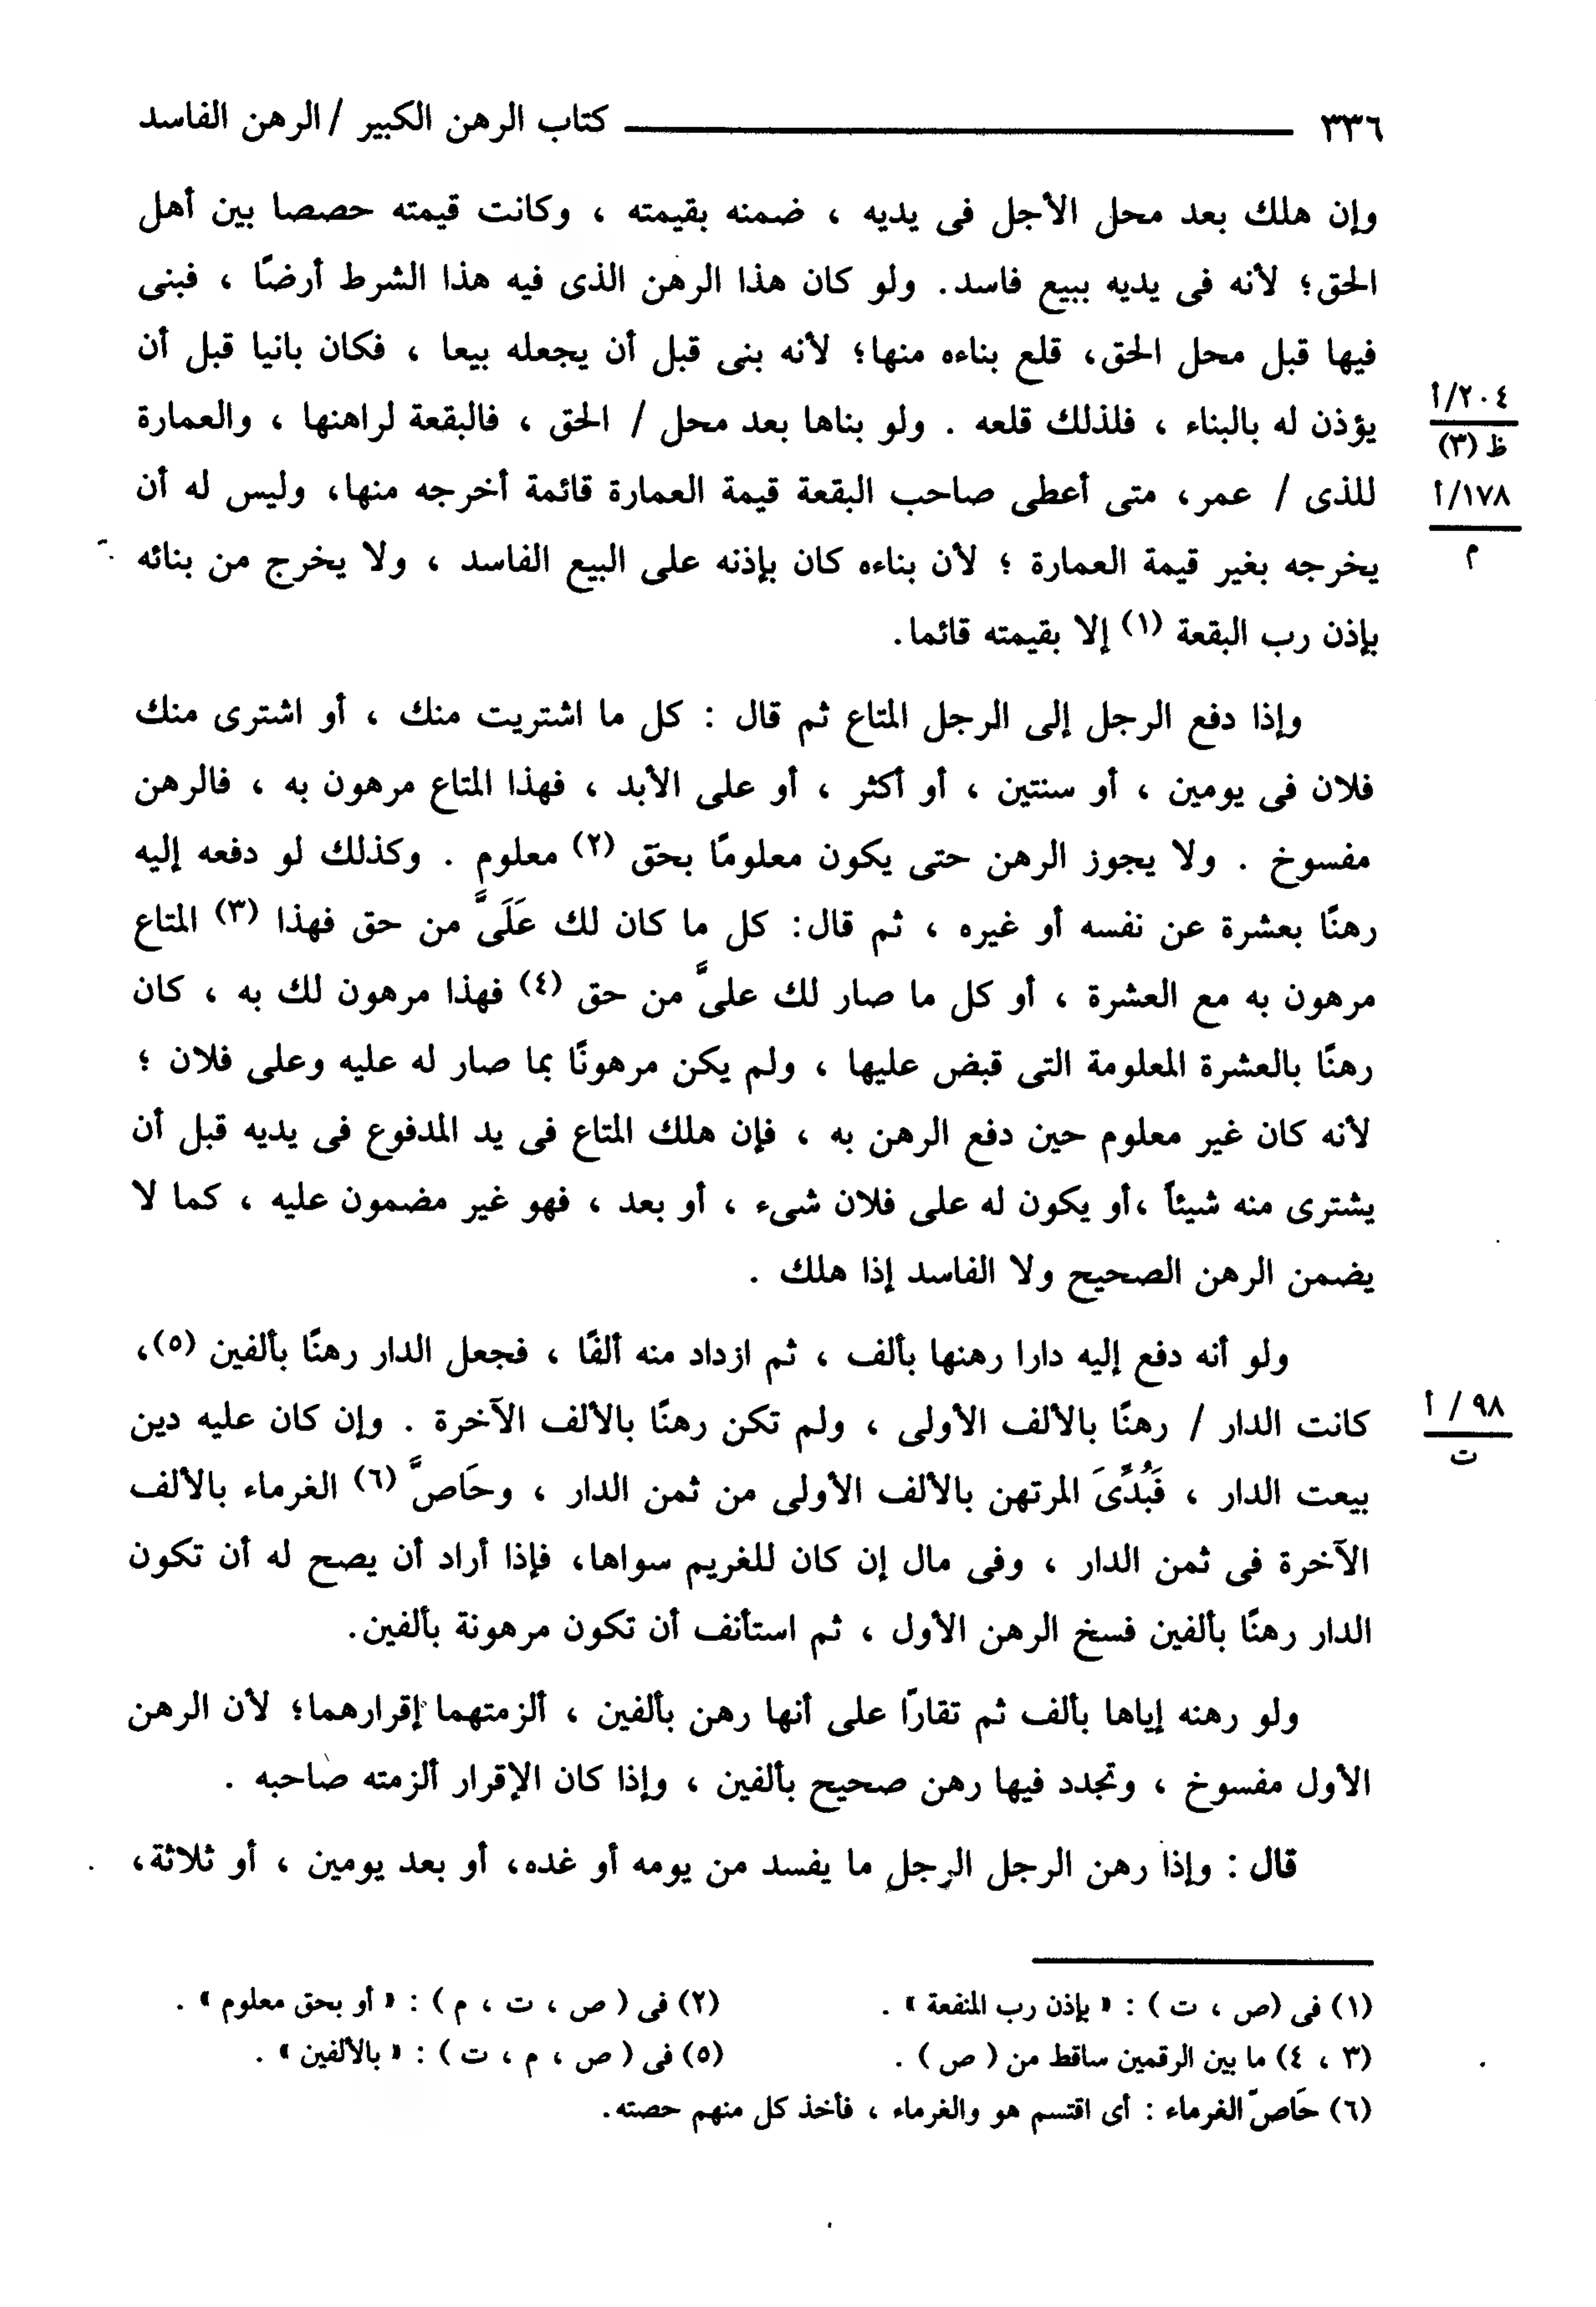 ٣٣٦ كتاب الرهن الكبير / الرهن الفاسد
وإن هلك بعد محل الأجل فى يديه ، ضمنه بقيمته ، وكانت قيمته حصصا بين أهل
الحق؛ لأنه فى يديه ببيع فاسد. ولو كان هذا الرهن الذى فيه هذا الشرط أرضًا ، فبنى
فيها قبل محل الحق، قلع بناءه منها؛ لأنه بنى قبل أن يجعله بيعا ، فكان بانيا قبل أن
يؤذن له بالبناء ، فلذلك قلعه . ولو بناها بعد محل / الحق ، فالبقعة لراهنها ، والعمارة
٢٠٤/أ
ظ (٣)
للذى / عمر، متى أعطى صاحب البقعة قيمة العمارة قائمة أخرجه منها، وليس له أن
١٧٨/أ
م
يخرجه بغير قيمة العمارة ؛ لأن بناءه كان بإذنه على البيع الفاسد ، ولا يخرج من بنائه
بإذن رب البقعة (١) إلا بقيمته قائما.
وإذا دفع الرجل إلى الرجل المتاع ثم قال : كل ما اشتريت منك ، أو اشترى منك
فلان فى يومين ، أو سنتين ، أو أكثر ، أو على الأبد ، فهذا المتاع مرهون به ، فالرهن
مفسوخ . ولا يجوز الرهن حتى يكون معلومًا بحق (٢) معلوم . وكذلك لو دفعه إليه
رهنًا بعشرة عن نفسه أو غيره ، ثم قال: كل ما كان لك عَلَىَّ من حق فهذا (٣) المتاع
مرهون به مع العشرة ، أو كل ما صار لك علىَّ من حق (٤) فهذا مرهون لك به ، كان
رهنًا بالعشرة المعلومة التى قبض عليها ، ولم يكن مرهونًا بما صار له عليه وعلى فلان ؛
لأنه كان غير معلوم حين دفع الرهن به ، فإن هلك المتاع فى يد المدفوع فى يديه قبل أن
يشترى منه شيئاً ،أو يكون له على فلان شىء ، أو بعد ، فهو غير مضمون عليه ، كما لا
يضمن الرهن الصحيح ولا الفاسد إذا هلك .
ولو أنه دفع إليه دارا رهنها بألف ، ثم ازداد منه ألفًا ، فجعل الدار رهنًا بألفين (٥)،
كانت الدار / رهنًا بالألف الأولى ، ولم تكن رهنًا بالألف الآخرة . وإن كان عليه دين
٩٨ / أ
ت
بيعت الدار ، فَبُدِّىَ المرتهن بالألف الأولى من ثمن الدار ، وحَاصَّ (٦) الغرماء بالألف
الآخرة فى ثمن الدار ، وفى مال إن كان للغريم سواها، فإذا أراد أن يصح له أن تكون
الدار رهنًا بألفين فسخ الرهن الأول ، ثم استأنف أن تكون مرهونة بألفين.
ولو رهنه إياها بألف ثم تقارّا على أنها رهن بألفين ، ألزمتهما إقرارهما؛ لأن الرهن
الأول مفسوخ ، وتجدد فيها رهن صحيح بألفين ، وإذا كان الإقرار ألزمته صاحبه .
قال : وإذا رهن الرجل الرجل ما يفسد من يومه أو غده، أو بعد يومين ، أو ثلاثة،
(١) فى (ص ، ت ) : « بإذن رب المنفعة » .
(٢) فى ( ص ، ت ، م ) : « أو بحق معلوم » .
(٣ ، ٤) ما بين الرقمين ساقط من ( ص ) .
(٥) فى ( ص ، م ، ت ) : « بالألفين » .
(٦) حَاصّ الغرماء : أى اقتسم هو والغرماء ، فأخذ كل منهم حصته.